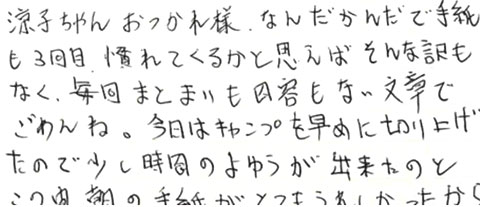 涼子ちゃん おつかれ様. なんだかんだで手紙
も3回目. 慣れてくるかと思えば そんな訳も
なく、毎回 まとまりも内容もない文章で
ごめんね。今日はキャンプを早めに切り上げ
たので少し時間のよゆうが出来たのと
この間 朝の手紙がとてもうれしかったから